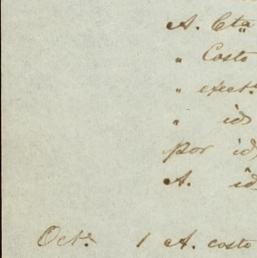 A. Cta
" Costo
" exect.
" id
por id
A. id
Oct.e 1 A. costo